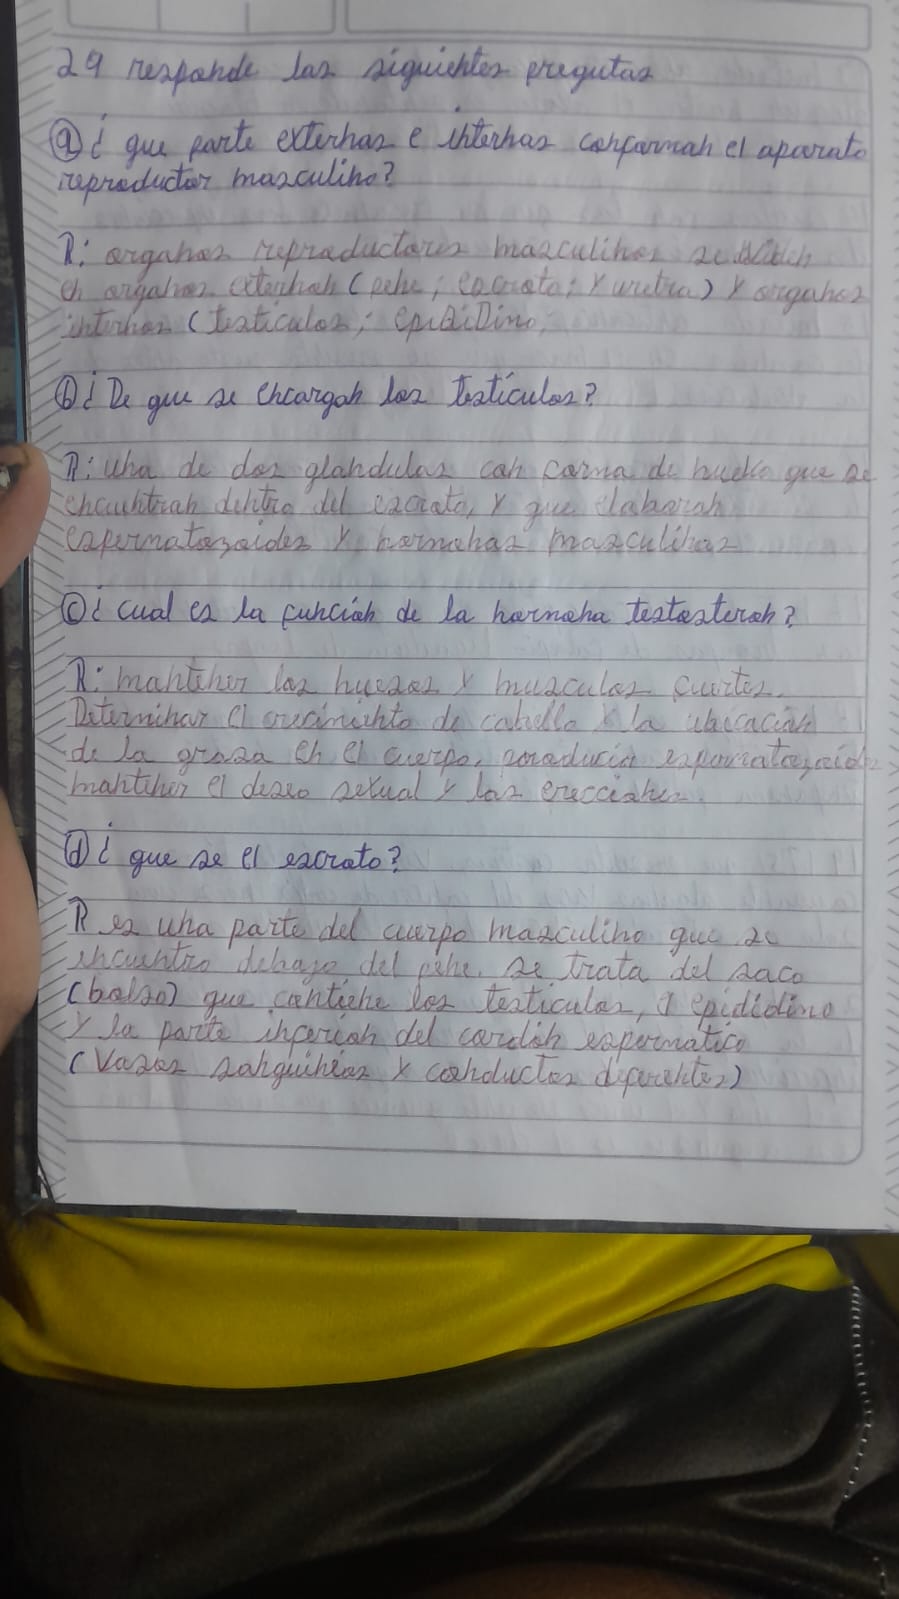 29 responde las siguientes pregutas
a) ¿ que parte externas e internas conforman el aparato
reproductor masculino?
R: organos reproductores masculinos se
en organos externan (pene; escroto; y uretra) y organos
internos (testiculos; epiDiDino;
b) ¿ De que se encargan los testículos?
R: una de dos glandulas con forma de huevo que se
encuentran dentro del escroto, y que elaboran
espermatozoides y hormonas masculinas
c) ¿ cual es la función de la hormona testosteron?
R: mantener los huesos y musculos fuertes.
Determinar el crecimiento de cabello y la ubicación
de la grasa en el cuerpo,
mantener el deseo sexual y las erecciones.
d) ¿ que se el escroto?
R es una parte del cuerpo masculino que se
encuentro debajo del pene. se trata del saco
(bolso) que contiene los testiculos, el epididino
y la parte inferior del cordón espermatico
(Vasos sanguineos y conductos deferentes)